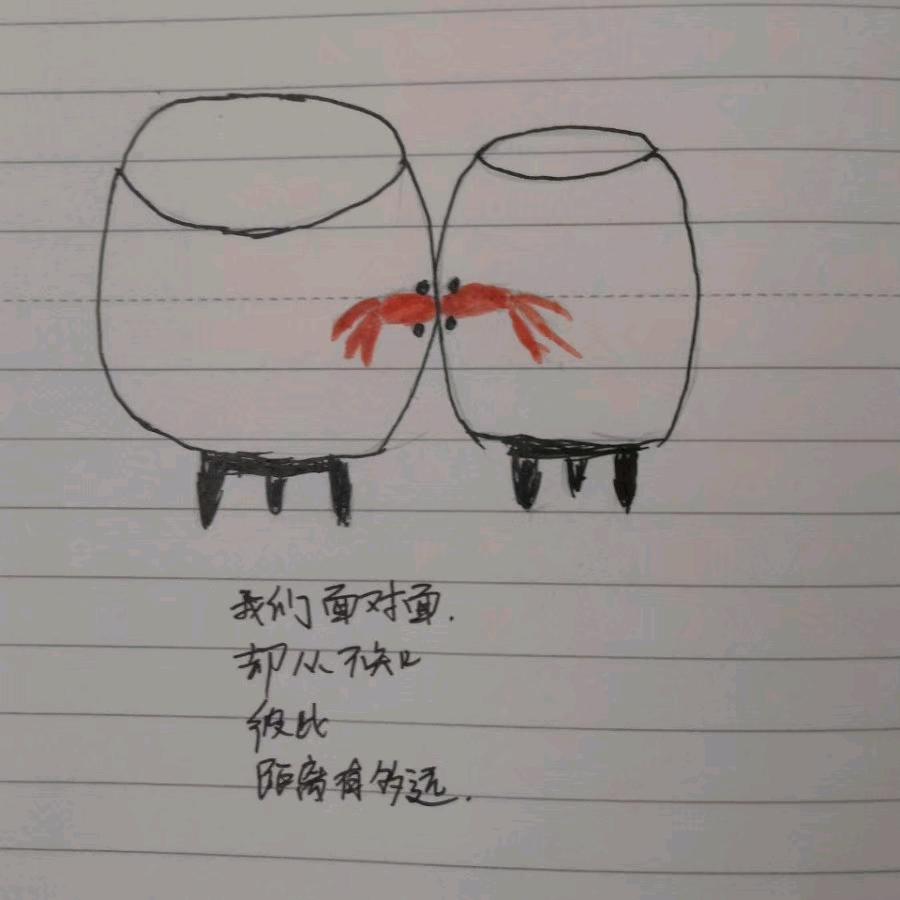 我们面对面.
却从不知
彼此
距离有多远.